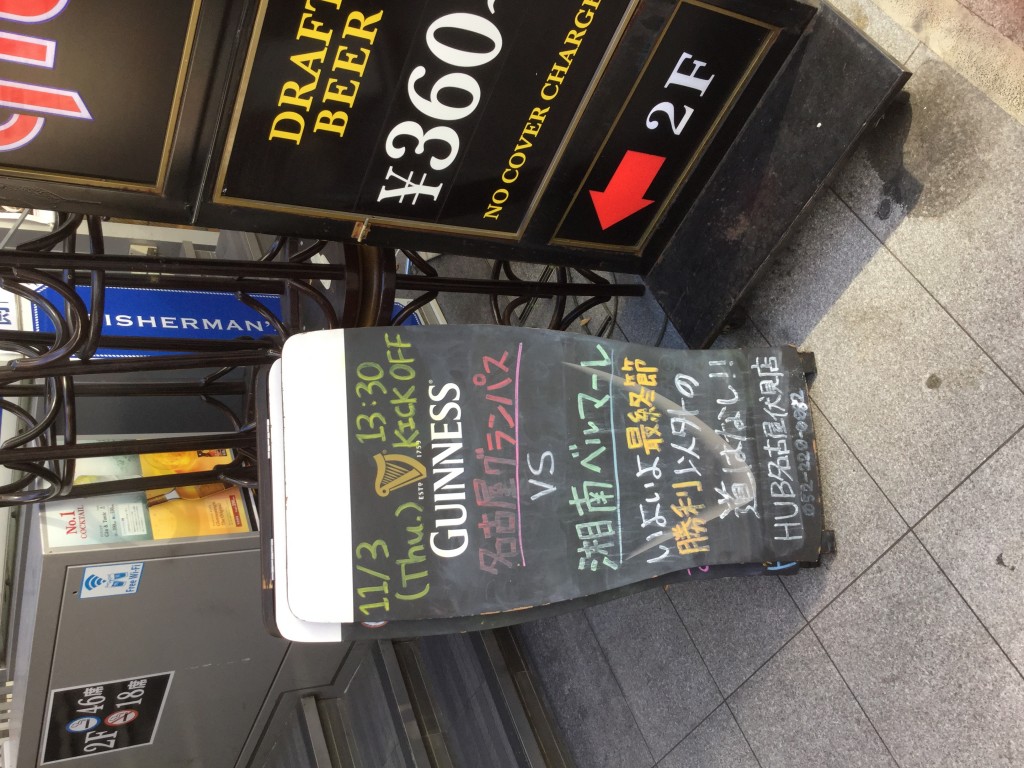 DRAFT
BEER
¥360~
NO COVER CHARGE
2F
FISHERMAN'
11/3 13:30
(Thu.) KICK OFF
ESTD 1759
GUINNESS
名古屋グランパス
VS
湘南ベルマーレ
いよいよ最終節
勝利以外の
道はなし!!
HUB名古屋伏見店
No.1
COCKTAIL
Free Wi-Fi
2F 46席
18席